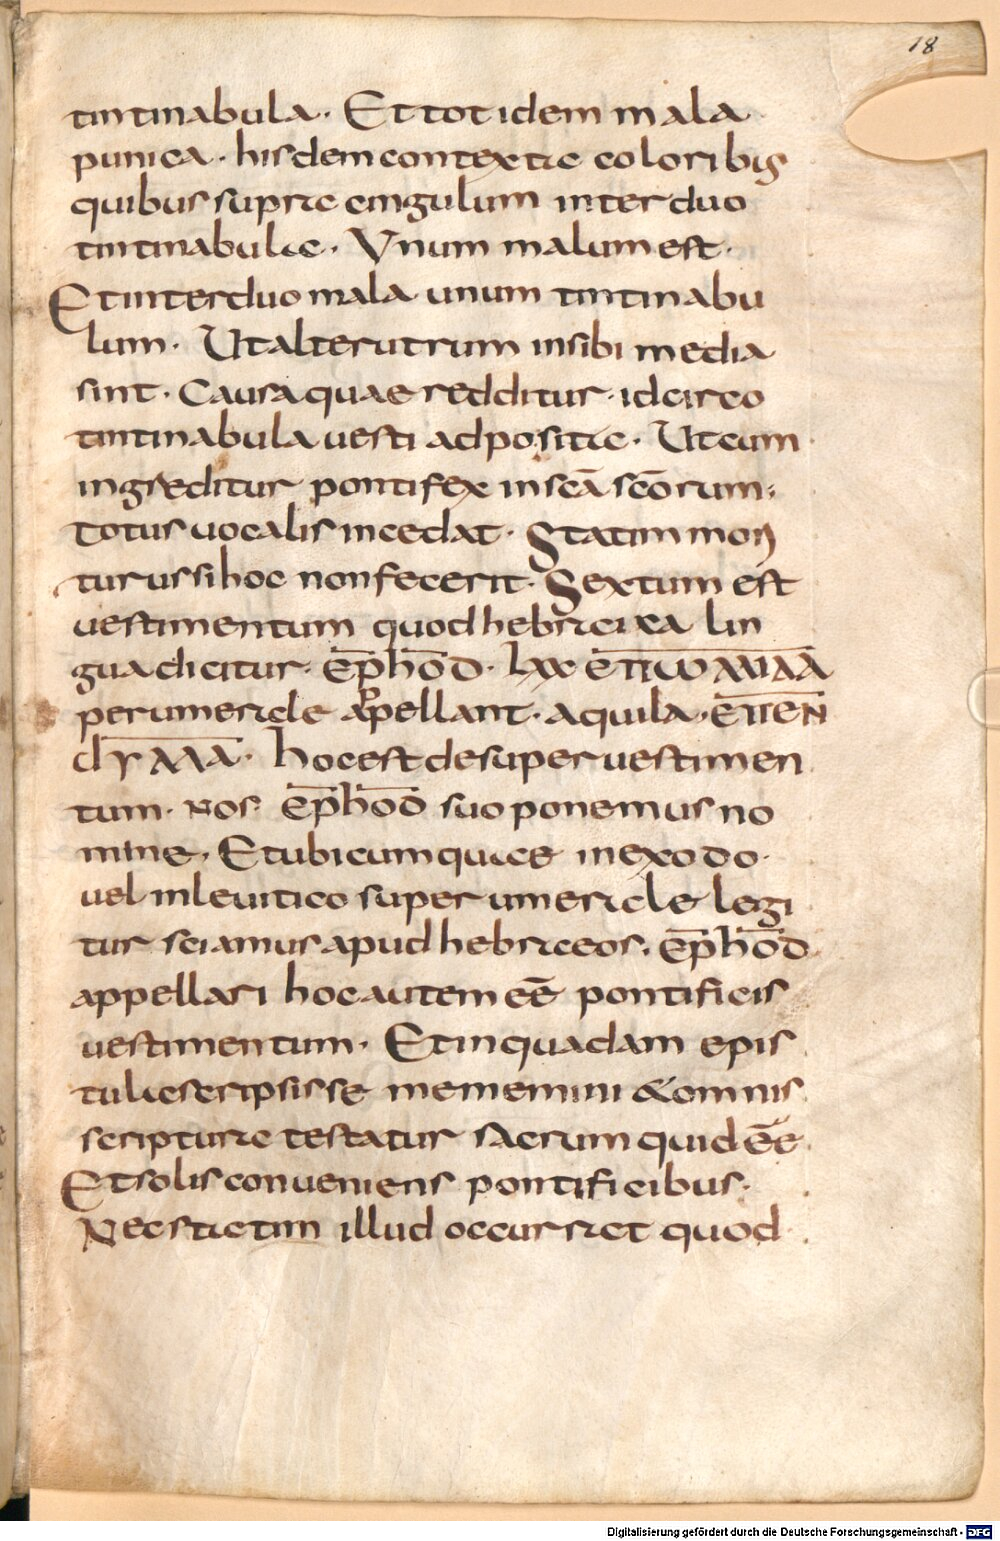 18
tintinabula. Et totidem mala
punica. hisdem contextae coloribus
quibus suprae cingulum inter duo
tintinabulae. Unum malum est.
Et inter duo mala unum tintinabu
lum. Ut alterutrum insibi media
sint. Causa quae redditur. idcirco
tintinabula uesti adpositae. Ut cum
ingreditur pontifex in scā scōrum;
totus uocalis incedat. Statim mori
turus si hoc non fecerit. Sextum est
uestimentum quod hebraeixa lin
gua dicitur. ēphōd. lxx ЄΠΙωΜΙΔΑ
per umeraele appellant. aquila. ЄΠЄΝ
dΥΜΑ. hoc est desuper uestimen
tum. nos. ēphōd suo ponemus no
mine. Et ubicumquae in exodo.
uel in leuitico super umeraele legi
tur sciamus apud hebraeos. ēphōd
appellari hoc autem eē pontificis
uestimentum. Et in quadam epis
tulae scripsisse mememini & omnis
scripturae testatur sacrum quid eē
Et solis conueniens pontificibus.
Nec staetim illud occurraet quod
Digitalisierung gefördert durch die Deutsche Forschungsgemeinschaft - DFG